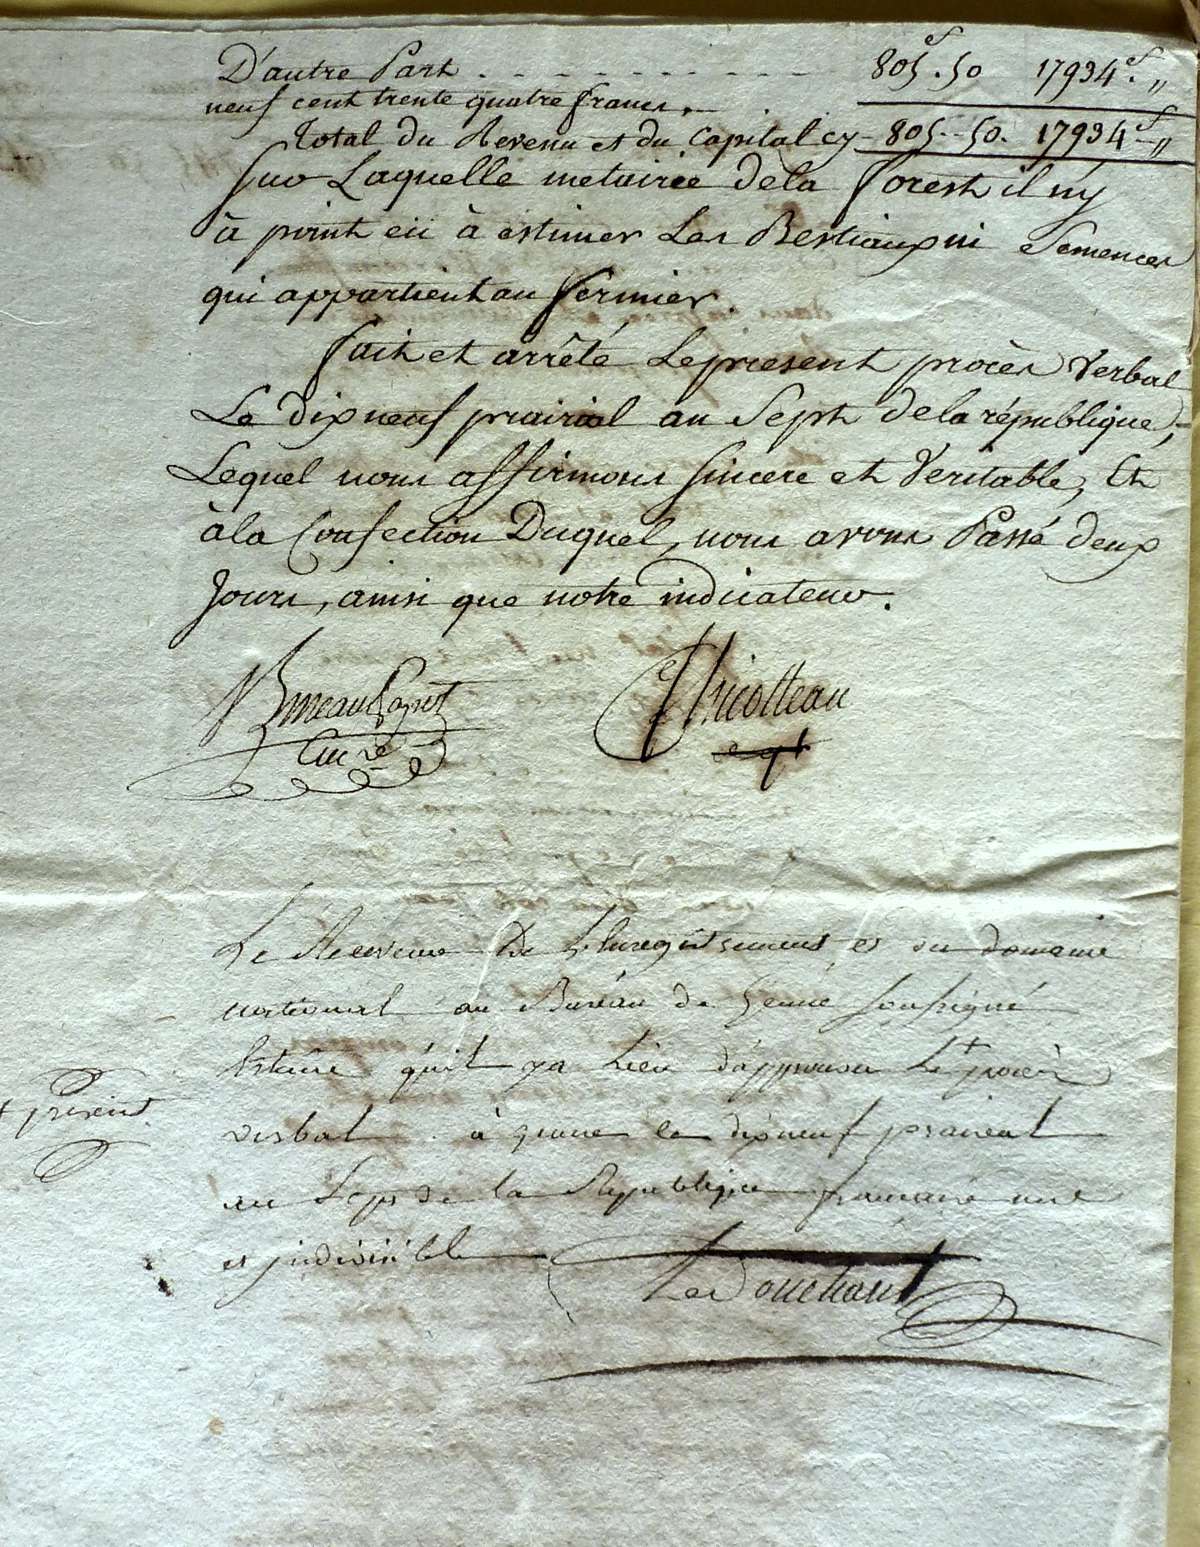 D'autre Part . - - - - - - - - - - 805.f 50 17934.f "
neuf cent trente quatre francs.
Total du Revenu et du Capital cy 805-50. 17934 f "
Sur Laquelle metairiee dela forest il n'y
à point eü à estimer Les Bestiaux ni Semences
qui appartient au fermier.
fait et arrêté Lepresent procès Verbal
Le dix neuf prairial an Sept de la république,
Lequel nous affirmons sincere et Veritable, Et
à la Confection Duquel, nous avons Passé deux
Jours, ainsi que notre indicateur.
Thicotteau
exp.t
Le Receveur De L'Enregistrement et du domaine
national au Bureau de soussigné
Estime qu'il y a Lieu d'approuver Le + procès
+ present
verbal. à le dix neuf prairial
an Sept de la République francaise une
et indivisible